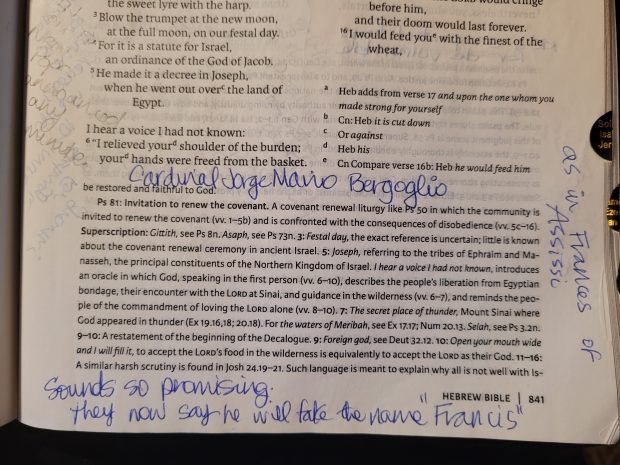 the sweet lyre with the harp.
3 Blow the trumpet at the new moon,
at the full moon, on our festal day.
4 For it is a statute for Israel,
an ordinance of the God of Jacob.
5 He made it a decree in Joseph,
when he went out over c the land of
Egypt.
I hear a voice I had not known:
6 "I relieved your d shoulder of the burden;
your d hands were freed from the basket.
before him,
and their doom would last forever.
16 I would feed you e with the finest of the
wheat,
a Heb adds from verse 17 and upon the one whom you
made strong for yourself
b Cn: Heb it is cut down
c Or against
d Heb his
e Cn Compare verse 16b: Heb he would feed him
Cardinal Jorge Mario Bergoglio
be restored and faithful to God.
Ps 81: Invitation to renew the covenant. A covenant renewal liturgy like Ps 50 in which the community is
invited to renew the covenant (vv. 1–5b) and is confronted with the consequences of disobedience (vv. 5c–16).
Superscription: Gittith, see Ps 8n. Asaph, see Ps 73n. 3: Festal day, the exact reference is uncertain; little is known
about the covenant renewal ceremony in ancient Israel. 5: Joseph, referring to the tribes of Ephraim and Ma-
nasseh, the principal constituents of the Northern Kingdom of Israel. I hear a voice I had not known, introduces
an oracle in which God, speaking in the first person (vv. 6–10), describes the people's liberation from Egyptian
bondage, their encounter with the LORD at Sinai, and guidance in the wilderness (vv. 6–7), and reminds the peo-
ple of the commandment of loving the LORD alone (vv. 8–10). 7: The secret place of thunder, Mount Sinai where
God appeared in thunder (Ex 19.16,18; 20.18). For the waters of Meribah, see Ex 17.17; Num 20.13. Selah, see Ps 3.2n.
9–10: A restatement of the beginning of the Decalogue. 9: Foreign god, see Deut 32.12. 10: Open your mouth wide
and I will fill it, to accept the LORD's food in the wilderness is equivalently to accept the LORD as their God. 11–16:
A similar harsh scrutiny is found in Josh 24.19–21. Such language is meant to explain why all is not well with Is-
HEBREW BIBLE | 841
Sounds so promising.
they now say he will take the name "Francis"
as in Frances of
Assissi